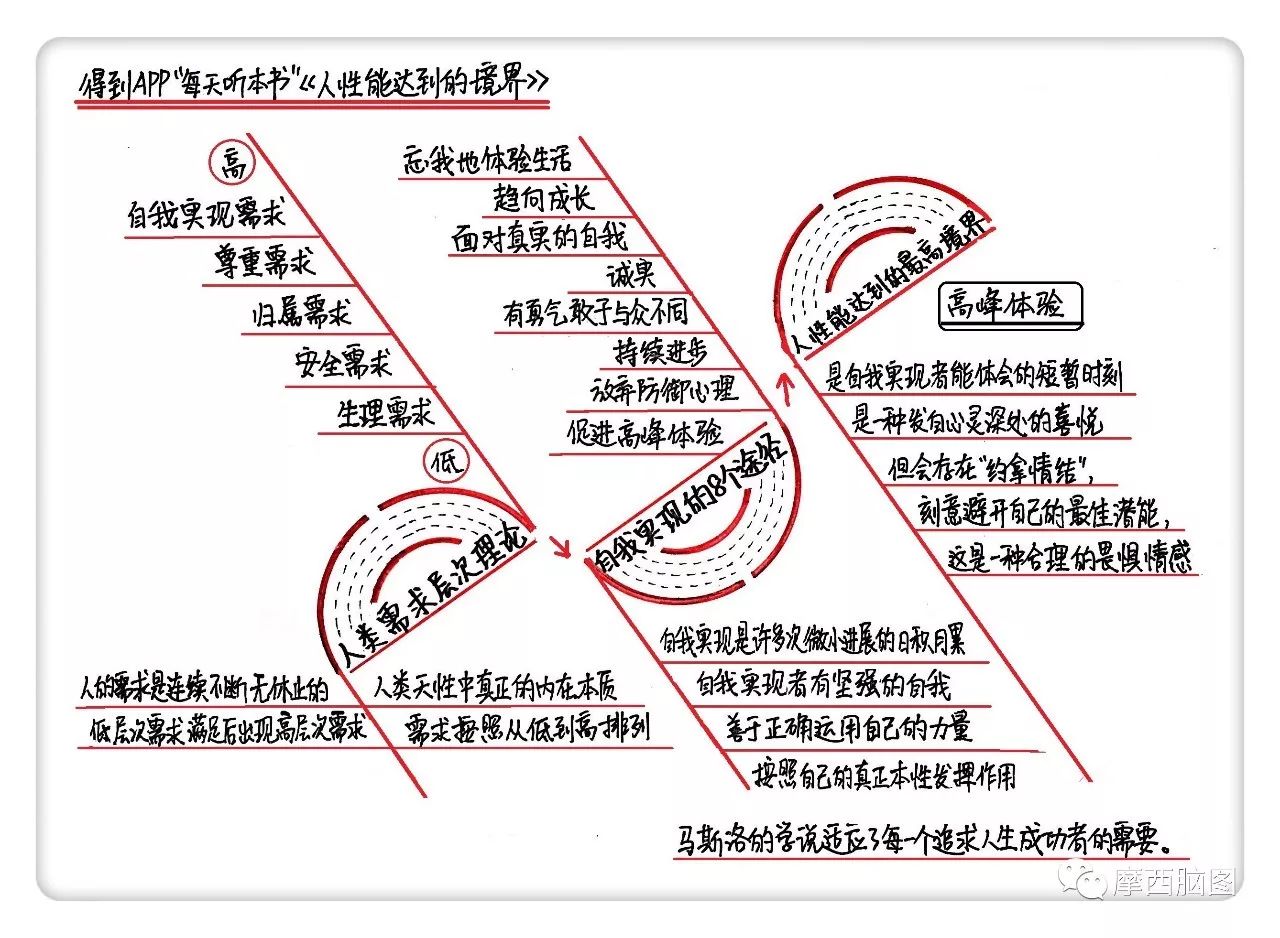 得到APP“每天听本书”《人性能达到的境界》
高
自我实现需求
尊重需求
归属需求
安全需求
生理需求
低
人类需求层次理论
人的需求是连续不断无休止的
低层次需求满足后出现高层次需求
人类天性中真正的内在本质
需求按照从低到高排列
忘我地体验生活
趋向成长
面对真实的自我
诚实
有勇气敢于与众不同
持续进步
放弃防御心理
促进高峰体验
自我实现的8个途径
自我实现是许多次微小进展的日积月累
自我实现者有坚强的自我
善于正确运用自己的力量
按照自己的真正本性发挥作用
人性能达到的最高境界
高峰体验
是自我实现者能体会的短暂时刻
是一种发自心灵深处的喜悦
但会存在“约拿情结”,
刻意避开自己的最佳潜能,
这是一种合理的畏惧情感
马斯洛的学说适应了每一个追求人生成功者的需要。
摩西脑图